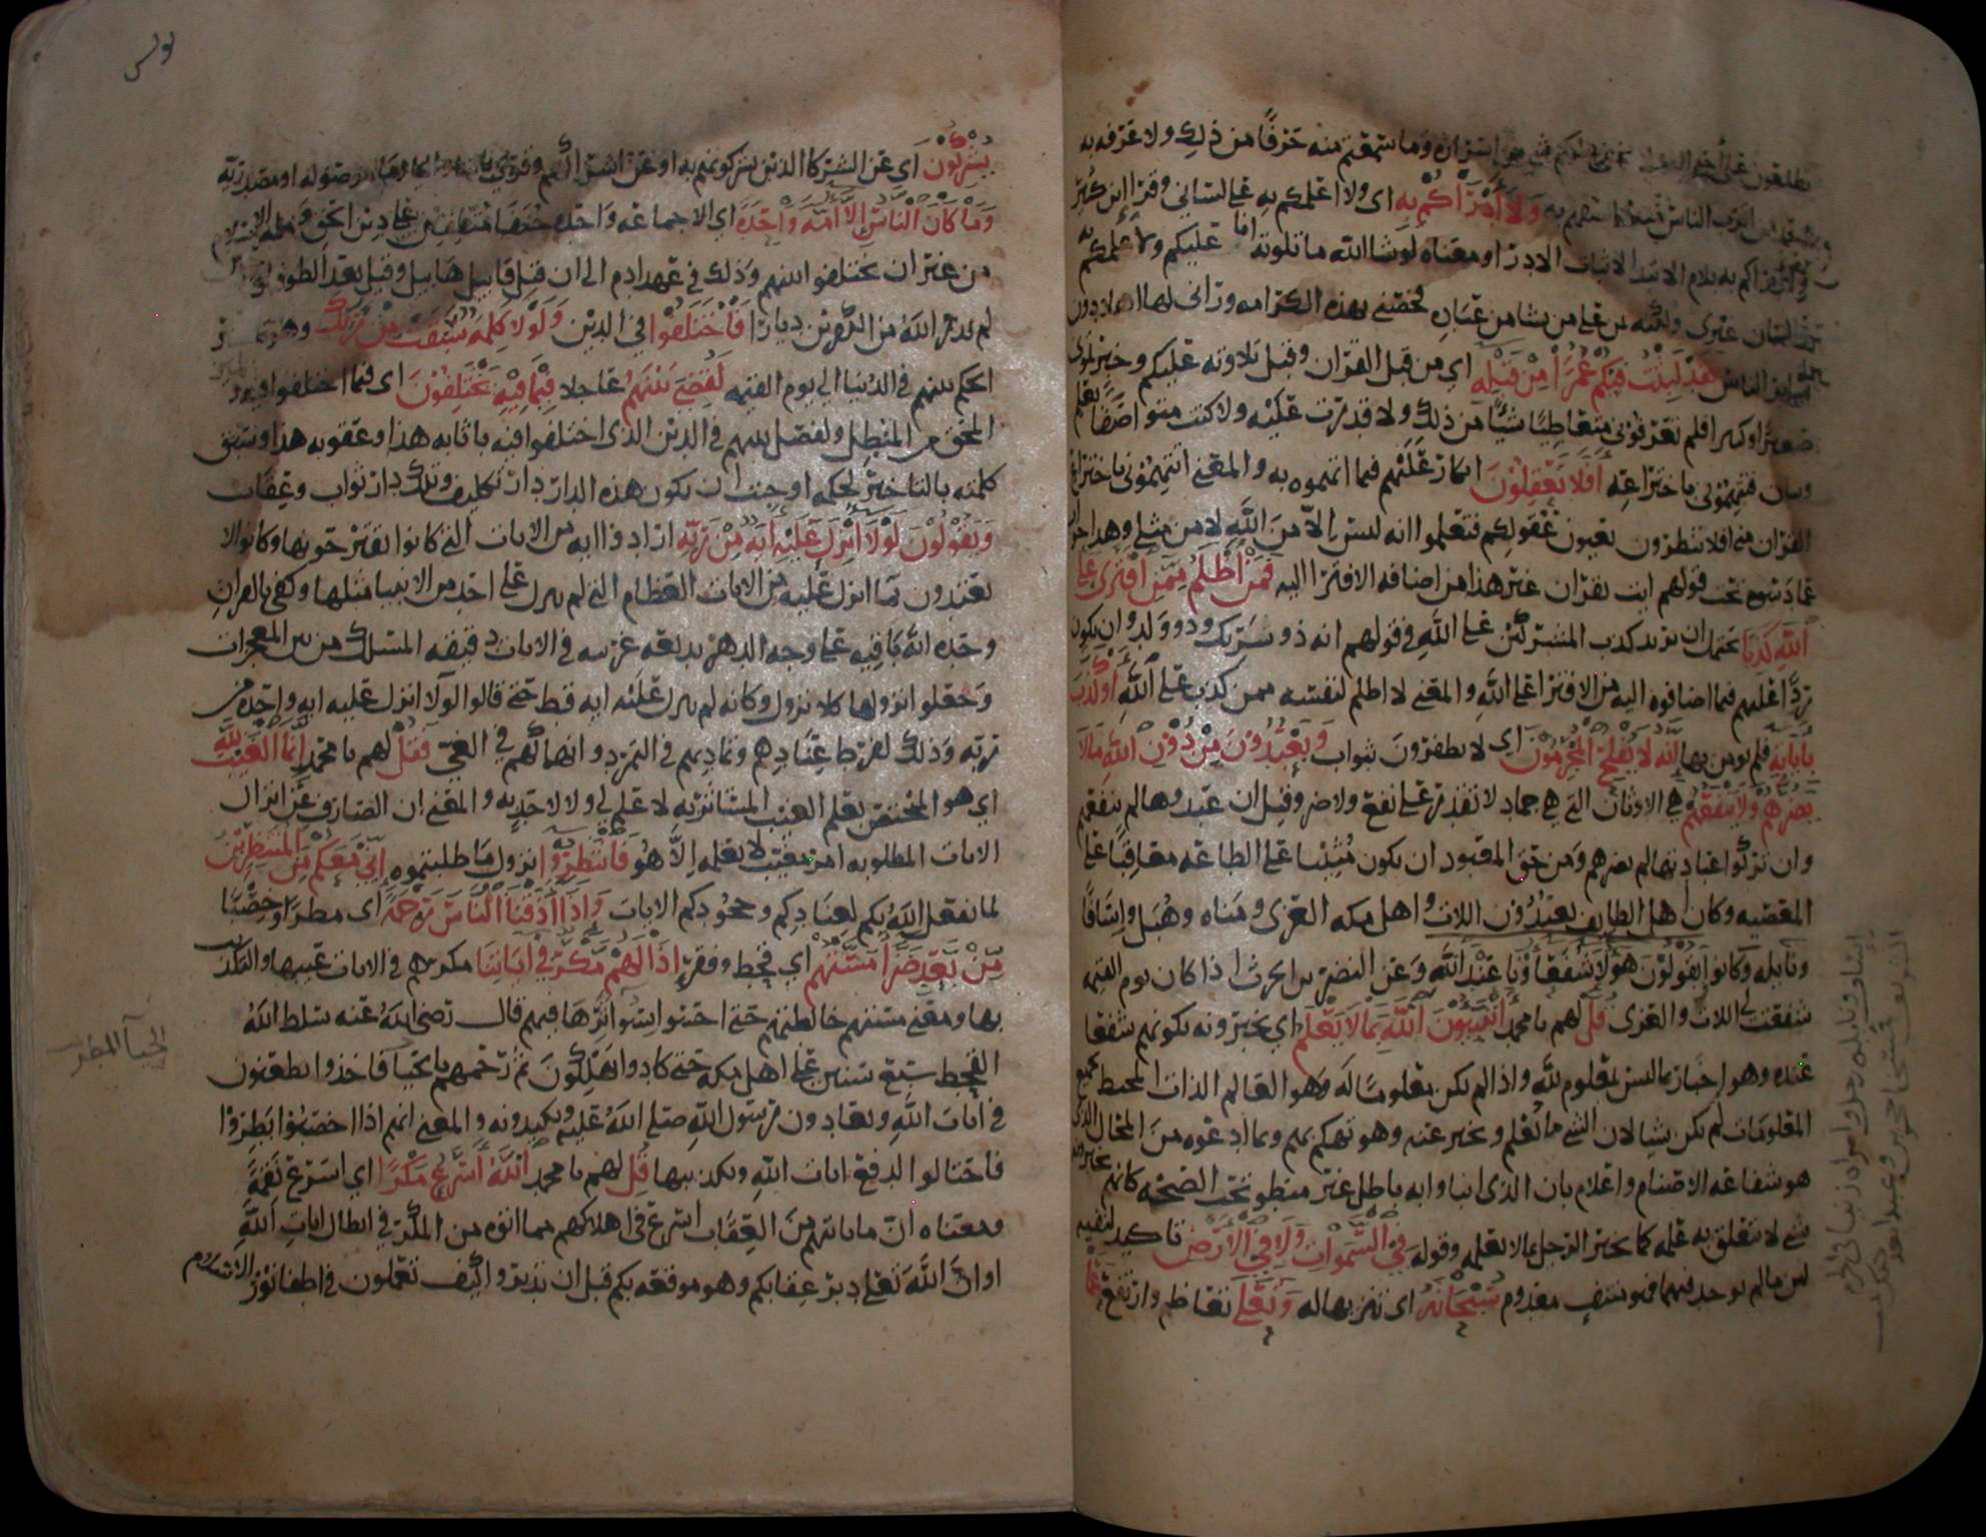 تطلعون على احواله
ولا ادراكم به اى ولا اعلمكم به على لسانى وقرا ابن كثير
ولادراكم به بلام الابتدا لاثبات الادرا ومعناه لو شا الله ما تلوته انا عليكم ولاعلمكم به
على لسان غيرى ولكنه يمن على من يشا من عباده فخصنى بهذه الكرامه ورانى لها اهلا دون
ساير الناس فقد لبثت فيكم عمرا من قبله اي من قبل القران وقيل تلاوته عليكم وخبرتمونى
صغيرا وكبيرا فلم تعرفونى متعاطيا شيا من ذلك ولا قدرت عليه ولا كنت متواصفا بعلم
وبيان فتتهمونى باختراعه افلا تعقلون انكار عليهم فيما اتهموه به والمعنى اتتهمونى باختراع
القران منى افلا تنظرون بعيون عقولكم فتعلموا انه ليس الا من الله لا من مثلى وهذا جواب
عما دسوه تحت قولهم ايت بقران غير هذا من اضافه الافترا اليه فمن اظلم ممن افترى على
الله كذبا يحتمل ان يريد كذب المشركين على الله في قولهم انه ذو شريك وذو ولد وان يكون
ردا عليهم فيما اضافوه اليه من الافترا على الله والمعنى لا اظلم لنفسه ممن كذب على الله او كذب
باياته فلم يومن بها انه لا يفلح المجرمون اي لا يظفرون بثواب ويعبدون من دون الله ما لا
يضرهم ولا ينفعهم هي الاوثان التي هي جماد لا تقدر على نفع ولا ضر وقيل ان عبدوها لم تنفعهم
وان تركوا عبادتها لم تضرهم ومن حق المعبود ان يكون مثيبا على الطاعه معاقبا على
المعصيه وكان اهل الطايف يعبدون اللات واهل مكه العزى ومناه وهبل واسافا
ونايله وكانوا يقولون هولا شفعاونا عند الله وعن النضر بن الحرث اذا كان يوم القيمه
شفعت لى اللات والعزى قل لهم يا محمد اتنبيون الله بما لا يعلم اي تخبرونه بكونهم شفعا
عنده وهو اخبار بما ليس بمعلوم لله واذا لم يكن معلوما له وهو العالم الذات المحيط بجميع
المعلومات لم يكن شيا لان الشي ما يعلم ويخبر عنه وهو تهكم بهم وبما ادعوه من المحال الذي
هو شفاعه الاصنام واعلام بان الذى انباوا به باطل غير منطو تحت الصحه كانهم يخبرونه
بشي لا يتعلق به علمه كما يخبر الرجل بما لا يعلمه وقوله في السموات ولا في الارض تاكيد لنفيه
لان ما لم يوجد فيهما فهو منتف معدوم سبحانه اى تنزيها له وتعلى تعاظم وارتفع عما
اساف ونايله رجل وامراه زنيا في الحرم
فمسخا حجرين وعبدا بعد
يونس
يشركون اي عن الشركا الذين يشركونهم به او عن اشراكهم وقرى بالتا
وما كان الناس الا امه واحده اي الا جماعه واحده حنفا متفقين على دين الحق
من غير ان يختلفوا بينهم وذلك في عهد ادم الى ان قتل قابيل هابيل وقيل بعد الطوفان
لم يذر الله من الكفرين ديارا فاختلفوا في الدين ولولا كلمه سبقت من ربك وهو تاخير
الحكم بينهم في الدنيا الى يوم القيمه لقضي بينهم عاجلا فيما فيه يختلفون اى فيما اختلفوا فيه
المحق من المبطل ولفصل بينهم في الدين الذى اختلفوا فيه باثابه هذا وعقوبه هذا وسبق
كلمته بالتاخير لحكمه اوجبت ان تكون هذه الدار دار تكليف وتلك دار ثواب وعقاب
ويقولون لولا انزل عليه ايه من ربه ارادوا ايه من الايات التي كانوا يقترحونها وكانوا لا
يعتدون بما انزل عليه من الايات العظام التي لم ينزل على احد من الانبيا مثلها وكفى بالقران
وحده ايه باقيه على وجه الدهر بديعه غريبه في الايات دقيقه المسلك من بين المعجزات
وجعلوا نزولها كلا نزول وكانه لم ينزل عليه ايه قط حتى قالوا لولا انزل عليه ايه واحده من
ربه وذلك لفرط عنادهم وتماديهم في التمرد وانهماكهم في الغي فقل لهم يا محمد انما الغيب لله
اي هو المختص بعلم الغيب المستاثر به لا علم لي ولا لاحد به والمعنى ان الصارف عن انزال
الايات المطلوبه امر مغيب لا يعلمه الا هو فانتظروا نزول ما طلبتموه اني معكم من المنتظرين
لما يفعل الله بكم لعنادكم وجحودكم الايات واذا اذقنا الناس رحمة اى مطرا وخصبا
من بعد ضرا مستهم اي قحط وفقر اذا لهم مكر في اياتنا مكرهم في الايات عيبها والتكذيب
بها ومعنى مستهم خالطتهم حتى احسوا بسوا اثرها فيهم قال رضى الله عنه سلط الله
القحط سبع سنين على اهل مكه حتى كادوا يهلكون ثم رحمهم بالحيا فاخذوا يطعنون
في ايات الله ويعادون رسول الله صلى الله عليه ويكيدونه والمعنى انهم اذا اخصبوا بطروا
فاحتالوا لدفع ايات الله وتكذيبها قل لهم يا محمد الله اسرع مكرا اي اسرع نقمة
ومعناه ان ما ياتيهم من العقاب اسرع في اهلاكهم مما اتوه من المكر في ابطال ايات الله
او ان الله تعلى دبر عقابكم وهو موقعه بكم قبل ان تدبروا كيف تعملون في اطفا نور الاسلام
الحيا المطر